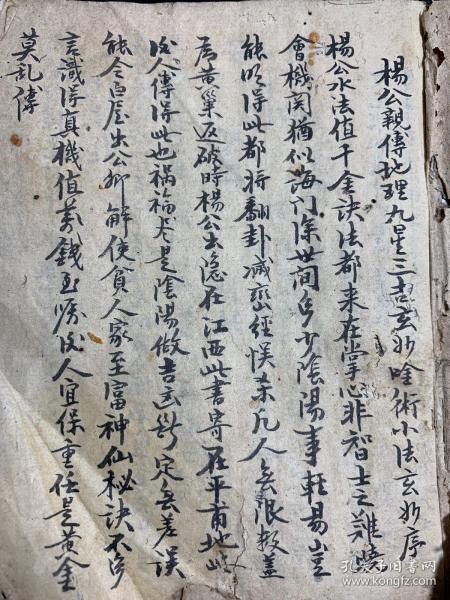 楊公親傳地理九星三吉玄妙唫術小法玄妙序
楊公水法值千金訣法都来在掌心非智士之難曉
會機関猶似海门深世間多少陰陽事軽易豈
能明得此都将翻卦滅蛮經悮杀凢人無限数盖
為黄巢返破時楊公出隐在江西此書寄在平甫地
後人傳得此也禍福尽是陰陽做吉凶断定無差误
能令白屋出公卿解使貧人家至富神仙秘訣不多
言識得真機值萬錢至嘱後人宜保重任是黄金
莫乱傳
孔夫子旧书网